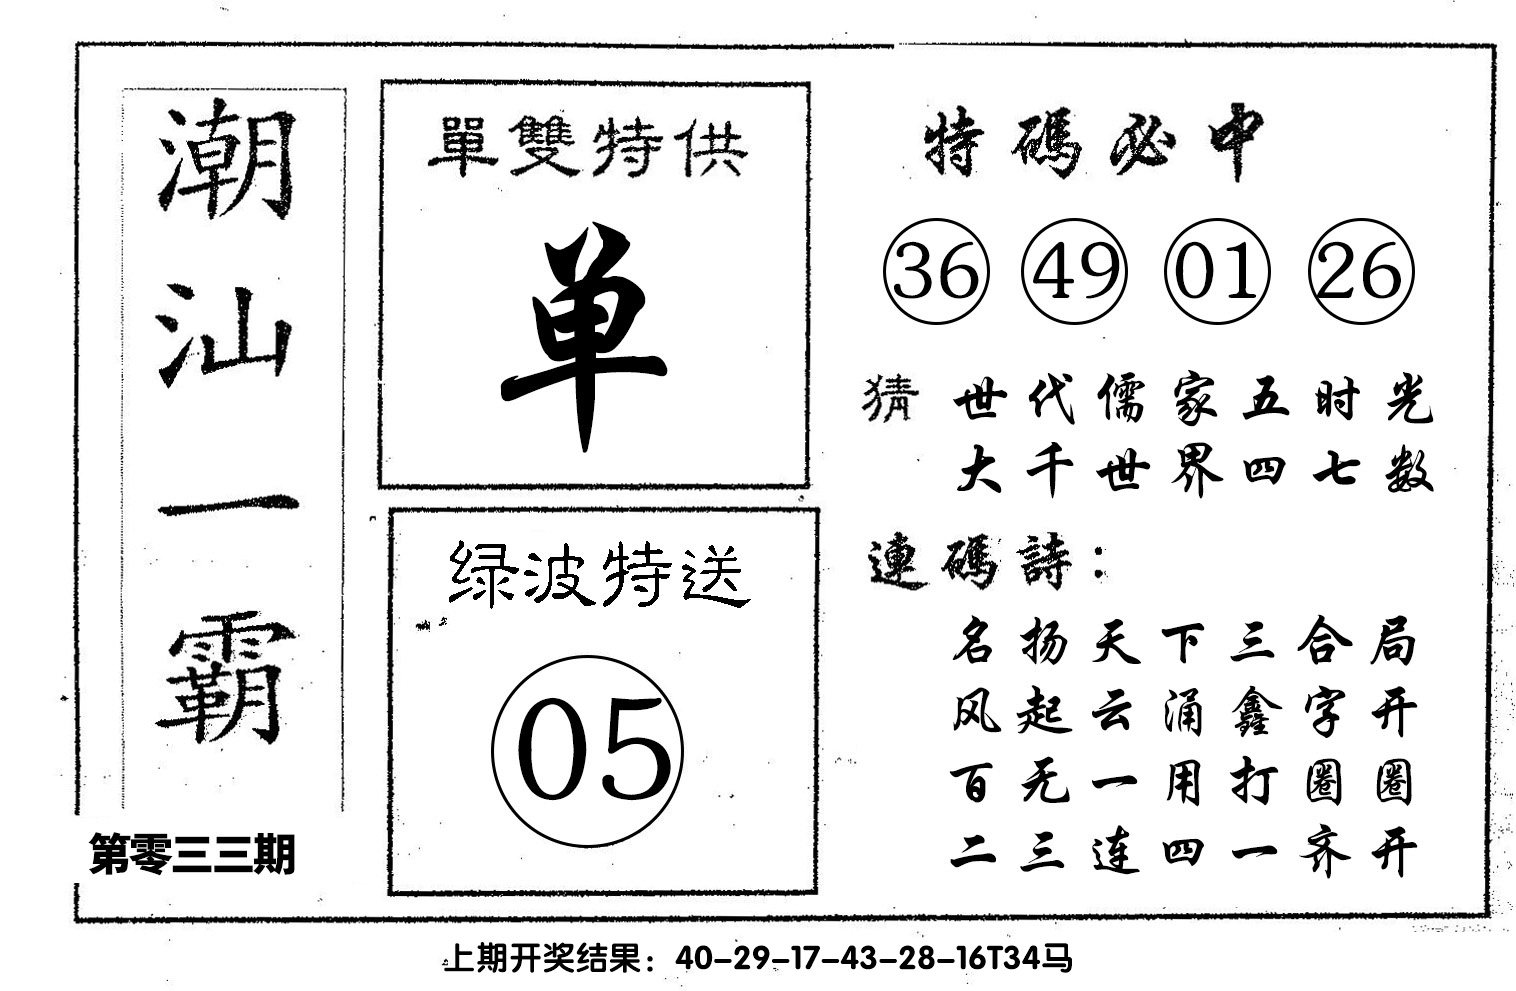 潮汕一霸
第零三三期
單雙特供
单
绿波特送
05
特碼必中
36 49 01 26
猜 世代儒家五时光
大千世界四七数
連碼詩：
名扬天下三合局
风起云涌鑫字开
百无一用打圈圈
二三连四一齐开
上期开奖结果：40-29-17-43-28-16T34马